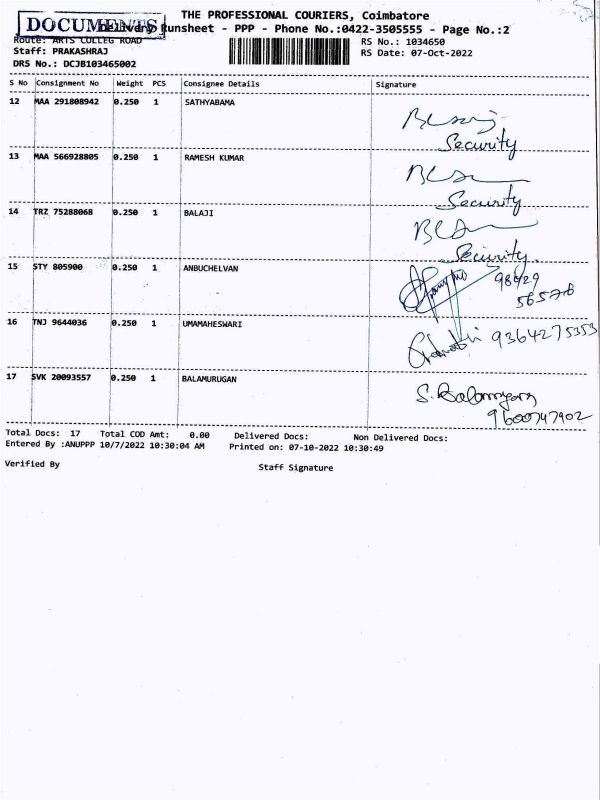 THE PROFESSIONAL COURIERS, Coimbatore
DOCUMENTS
Delivery Runsheet - PPP - Phone No.:0422-3505555 - Page No.:2
Route: ARTS COLLEG ROAD
RS No.: 1034650
Staff: PRAKASHRAJ
RS Date: 07-Oct-2022
DRS No.: DCJB103465002
S No Consignment No Weight PCS Consignee Details Signature
12 MAA 291808942 0.250 1 SATHYABAMA
Security
13 MAA 566928805 0.250 1 RAMESH KUMAR
Security
14 TRZ 75288068 0.250 1 BALAJI
Security
15 STY 805900 0.250 1 ANBUCHELVAN
16 TNJ 9644036 0.250 1 UMAMAHESWARI
9364275353
17 SVK 20093557 0.250 1 BALAMURUGAN
S. Balamurugan
9600747902
Total Docs: 17 Total COD Amt: 0.00 Delivered Docs: Non Delivered Docs:
Entered By :ANUPPP 10/7/2022 10:30:04 AM Printed on: 07-10-2022 10:30:49
Verified By Staff Signature